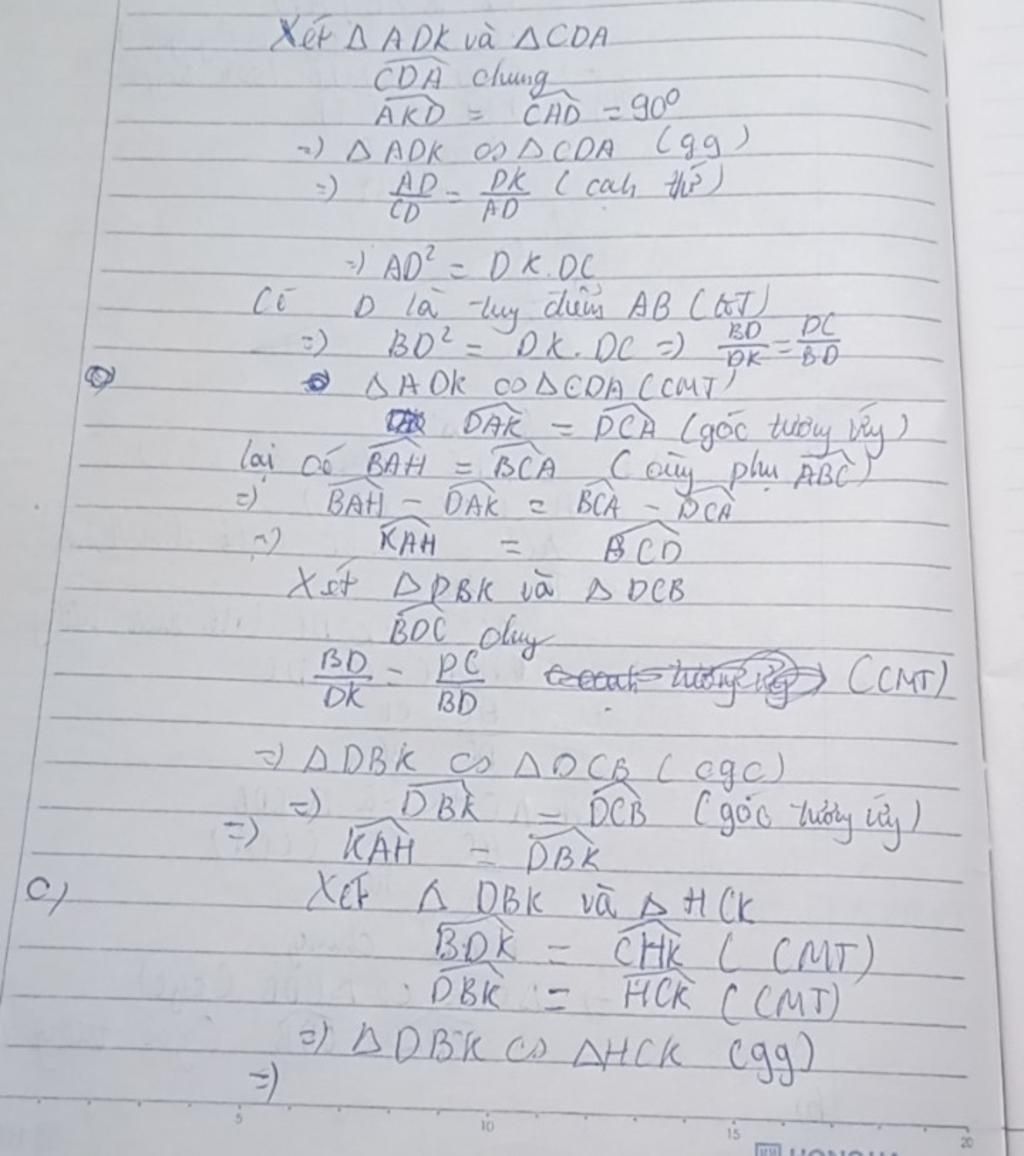 Xét Δ ADK và ΔCDA
CDA chung
AKD = CAD = 90⁰
=) Δ ADK ∽ ΔCDA (gg)
=) AD/CD = DK/AD (cah
=) AD² = DK.DC
Có D là tuy điểm AB (GT)
=) BD² = DK.DC =) BD/DK = DC/BD
Δ ADK ∽ ΔCDA (CMT)
DAK = DCA (góc tương ứy)
lại có BAH = BCA (cùy phụ ABC)
=) BAH - DAK = BCA - DCA
=) KAH = BCD
Xét Δ DBK và Δ DCB
BDC chuy
BD/DK = DC/BD (CMT)
=) Δ DBK ∽ Δ DCB (cgc)
=) DBK = DCB (góc tương ứy)
=) KAH = DBK
c) Xét Δ DBK và Δ HCK
BDK = CHK (CMT)
DBK = HCK (CMT)
=) Δ DBK ∽ ΔHCK (gg)
=)
5 10 15 20